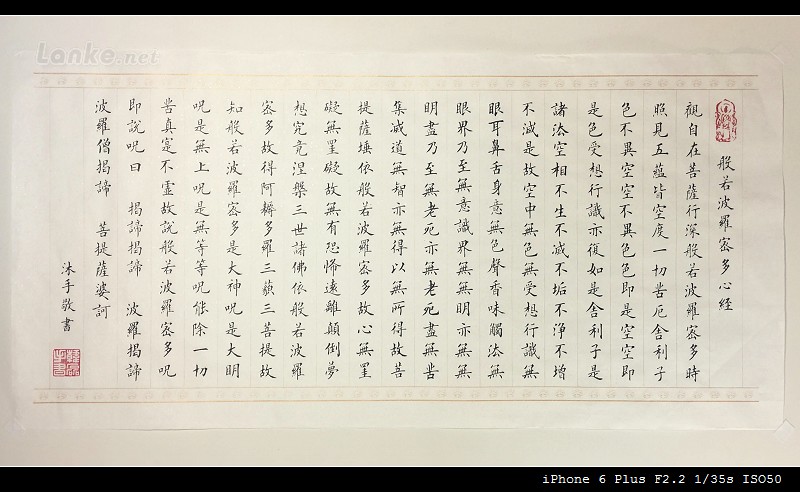 般若波羅密多心經
觀自在菩薩行深般若波羅密多時
照見五蘊皆空度一切苦厄舍利子
色不異空空不異色色即是空空即
是色受想行識亦復如是舍利子是
諸法空相不生不滅不垢不淨不增
不減是故空中無色無受想行識無
眼耳鼻舌身意無色聲香味觸法無
眼界乃至無意識界無無明亦無無
明盡乃至無老死亦無老死盡無苦
集滅道無智亦無得以無所得故菩
提薩埵依般若波羅密多故心無罣
礙無罣礙故無有恐怖遠離顛倒夢
想究竟涅槃三世諸佛依般若波羅
密多故得阿耨多羅三藐三菩提故
知般若波羅密多是大神呪是大明
呪是無上呪是無等等呪能除一切
苦真實不虛故說般若波羅密多呪
即說呪曰 揭諦揭諦 波羅揭諦
波羅僧揭諦 菩提薩婆訶
沐手敬書
Lanke.net
iPhone 6 Plus F2.2 1/35s ISO50